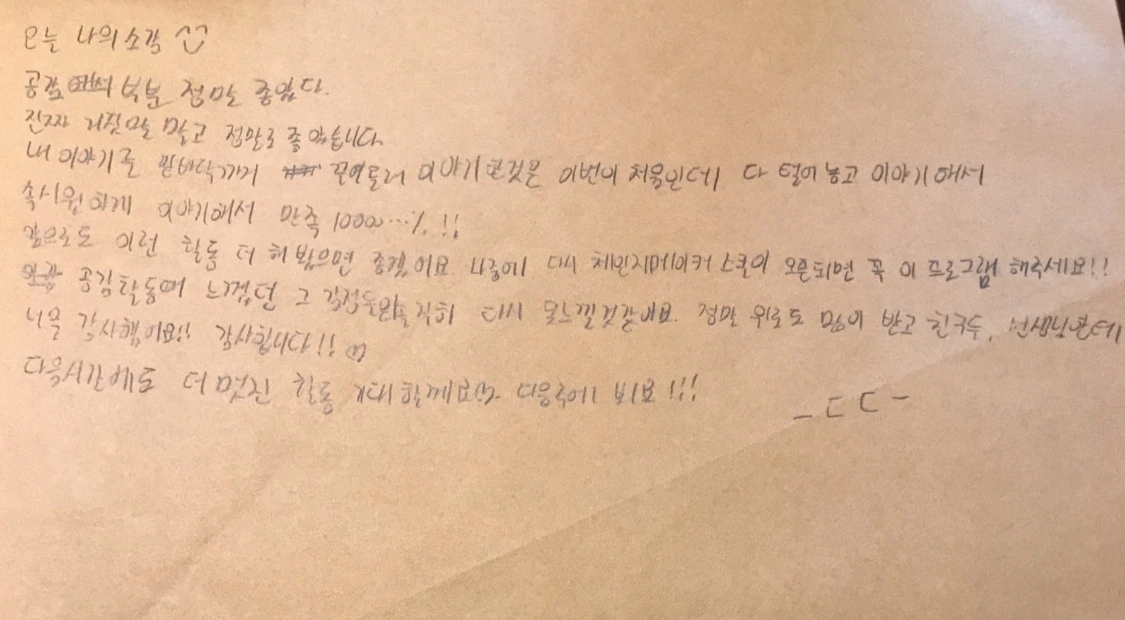 오늘 나의소감
공감 부분 정말 좋았다.
진짜 거짓말 말고 정말로 좋았습니다.
내 이야기를 밑바닥까지 이야기 한것은 이번이 처음인데 다 털어놓고 이야기해서
속시원하게 이야기해서 만족 10000…%!!
앞으로도 이런 활동 더 해봤으면 좋겠어요. 나중에 다시 체인지메이커 스쿨이 오픈되면 꼭 이 프로그램 해주세요!!
공감활동때 느꼈던 그 감정들 다시 못느낄것같아요. 정말 위로도 많이 받고 친구두, 선생님한테
너무 감사했어요!! 감사합니다!!
다음시간에도 더 멋진 활동 기대할께요. 다음주에 봬요!!!
-ㄷㄷ-